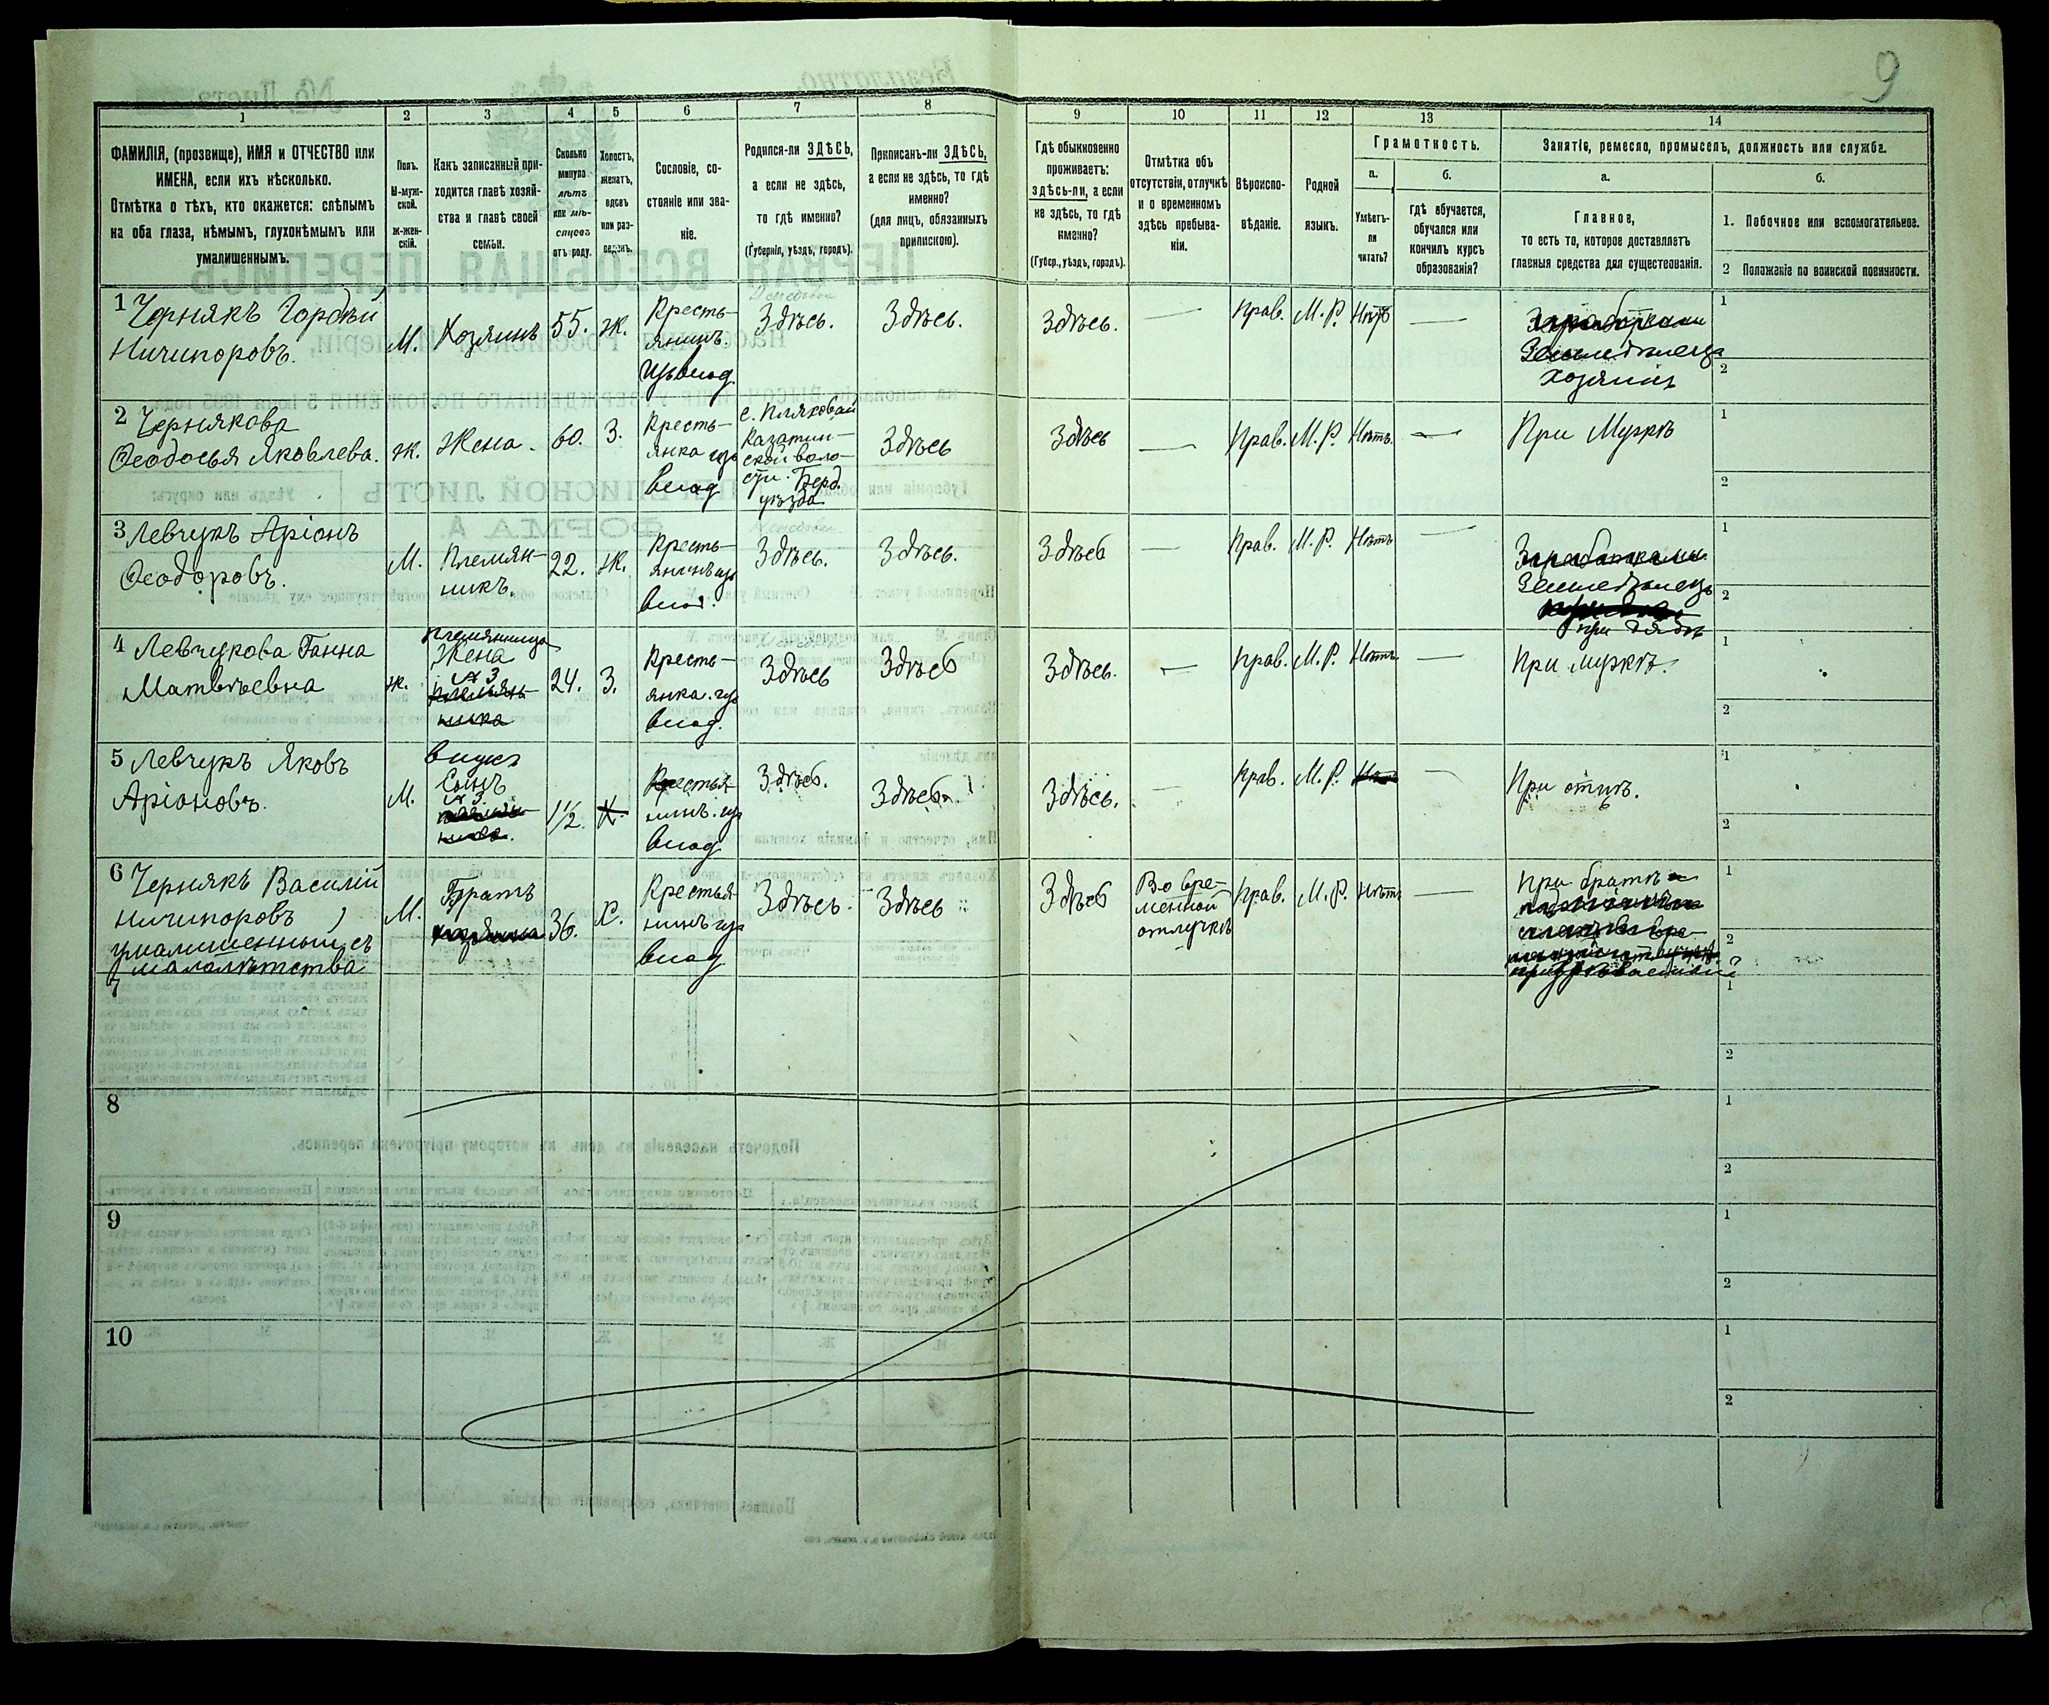 9
1
2
3
4
5
6
7
8
9
10
11
12
13
14
ФАМИЛІЯ, (прозвище), ИМЯ и ОТЧЕСТВО или
ИМЕНА, если ихъ нѣсколько.
Отмѣтка о тѣхъ, кто окажется: слѣпымъ
на оба глаза, нѣмымъ, глухонѣмымъ или
умалишеннымъ.
Полъ.
М-муж-
ской.
Ж-жен-
скій.
Какъ записанный при-
ходится главѣ хозяй-
ства и главѣ своей
семьи.
Сколько
минуло
лѣтъ
или мѣ-
сяцевъ
отъ роду.
Холостъ,
женатъ,
вдовъ
или раз-
веденъ.
Сословіе, со-
стояніе или зва-
ніе.
Родился-ли ЗДѢСЬ,
а если не здѣсь,
то гдѣ именно?
(Губернія, уѣздъ, городъ).
Приписанъ-ли ЗДѢСЬ,
а если не здѣсь, то гдѣ
именно?
(для лицъ, обязанныхъ
припискою).
Гдѣ обыкновенно
проживаетъ:
здѣсь-ли, а если
не здѣсь, то гдѣ
именно?
(Губер., уѣздъ, городъ).
Отмѣтка объ
отсутствіи, отлучкѣ
и о временномъ
здѣсь пребыва-
ніи.
Вѣроиспо-
вѣданіе.
Родной
языкъ.
Грамотность.
а.
Умѣетъ-
ли
читать?
б.
гдѣ обучается,
обучался или
кончилъ курсъ
образованія?
Занятіе, ремесло, промыселъ, должность или служба.
а.
Главное,
то есть то, которое доставляетъ
главныя средства для существованія.
б.
1. Побочное или вспомогательное.
2 Положеніе по воинской повинности.
1 Чернякъ Гордѣй
Ничипоровъ.
М.
Хозяинъ
55.
ж.
Кресть-
янинъ.
изъ влад.
Здѣсь.
Здѣсь.
Здѣсь.
—
Прав.
М. Р.
Нѣтъ
—
Земледѣлецъ
хозяинъ
1
2
2 Чернякова
Ѳеодосья Яковлева.
ж.
Жена.
60.
З.
Кресть-
янка изъ
влад
с. Пляховой
Казатин-
ской воло-
сти. Берд.
уѣзда
Здѣсь
Здѣсь
—
Прав.
М. Р.
Нѣтъ.
—
При Мужѣ
1
2
3 Левчукъ Аріонъ
Ѳеодоровъ.
М.
Племян-
никъ.
22.
ж.
Кресть-
янинъ изъ
влад.
Здѣсь.
Здѣсь.
Здѣсь
—
Прав.
М. Р.
Нѣтъ
—
Заработками
Земледѣлецъ
при дядѣ
1
2
4 Левчукова Ганна
Матвѣевна
ж.
племянница
Жена
№ 3
племян-
ника
24.
З.
Кресть-
янка. изъ
влад.
Здѣсь
Здѣсь
Здѣсь.
—
Прав.
М. Р.
Нѣтъ
—
При мужѣ.
1
2
5 Левчукъ Яковъ
Аріоновъ.
М.
внукъ
Сынъ
№ 3
1½.
Х.
Крестья-
нинъ. изъ
влад
Здѣсь.
Здѣсь.
Здѣсь.
—
Прав.
М. Р.
Нѣтъ
—
При отцѣ.
1
2
6 Чернякъ Василій
Ничипоровъ
умалишенный съ
малолѣтства
М.
Братъ
хозяина
36.
Х.
Крестья-
нинъ изъ
влад
Здѣсь.
Здѣсь
Здѣсь
Во вре-
менной
отлучкѣ
Прав.
М. Р.
Нѣтъ
—
При братѣ
1
2
7
1
2
8
1
2
9
1
2
10
1
2